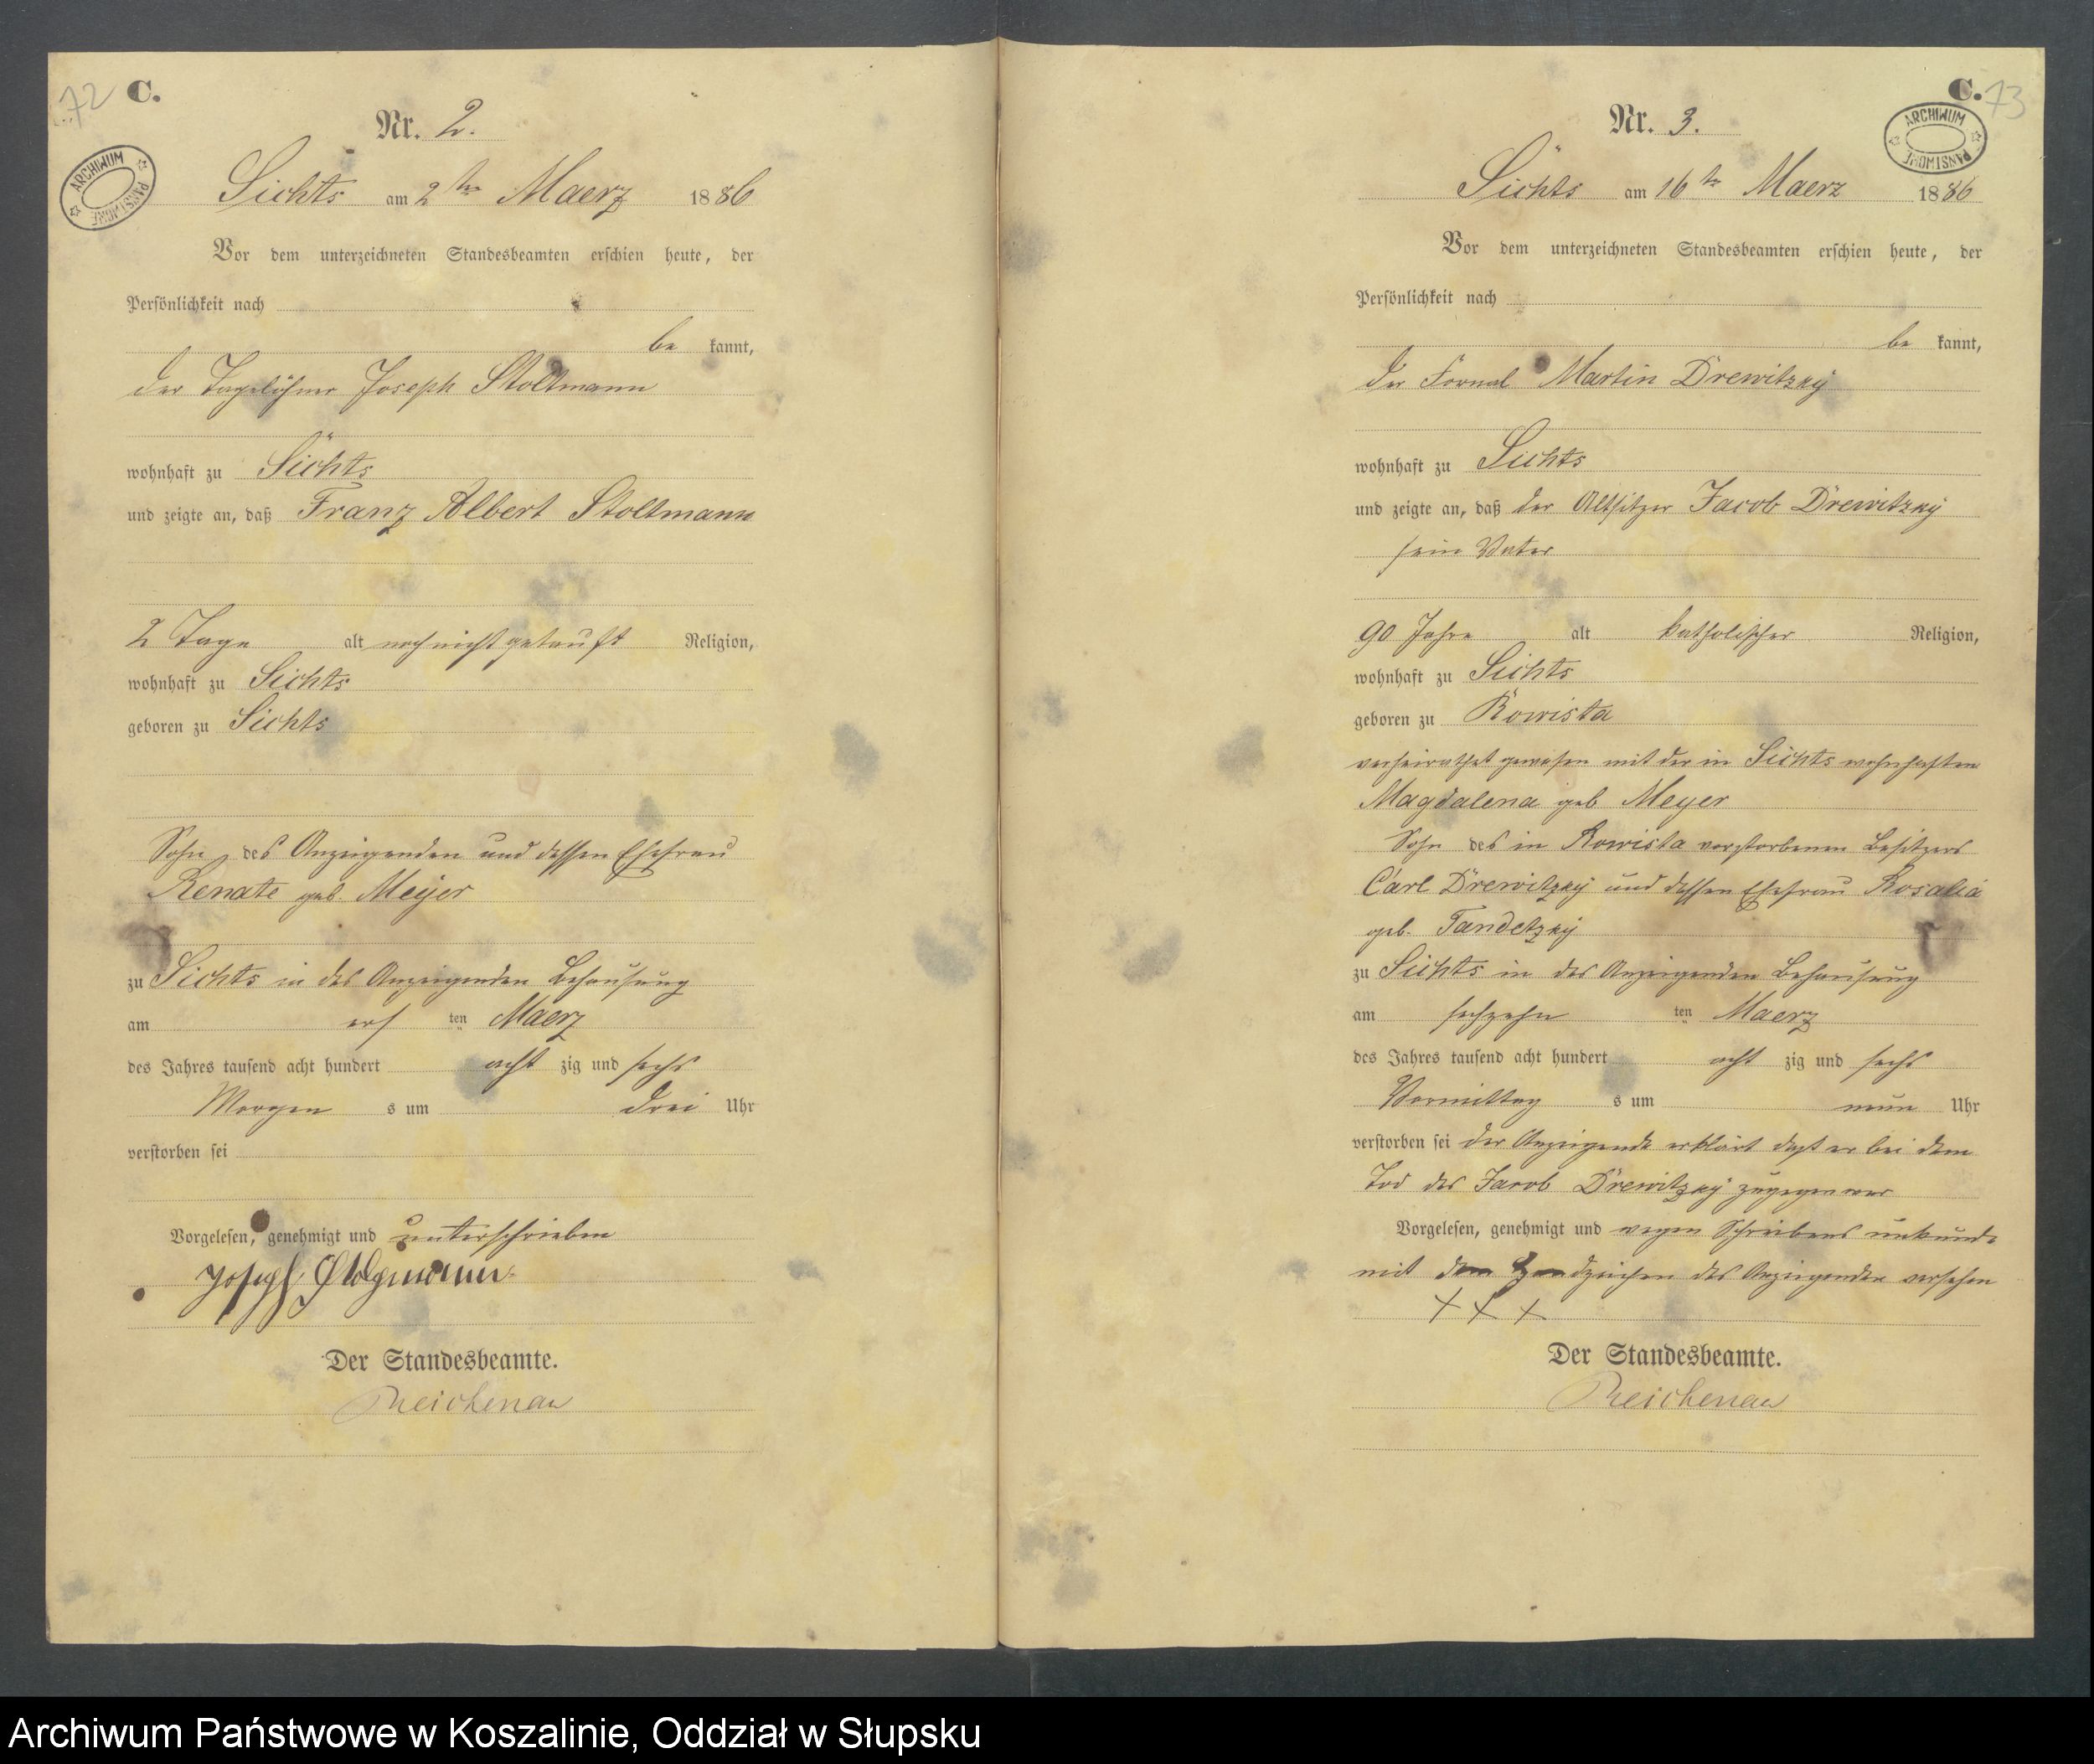 72 C.
ARCHIWUM PAŃSTWOWE
Nr. 2.
Lichts am 2ten Maerz 1886
Vor dem unterzeichneten Standesbeamten erschien heute, der
Persönlichkeit nach
be kannt,
der Tagelöhner Joseph Stoltmann
wohnhaft zu Lichts
und zeigte an, daß Franz Albert Stoltmann
2 Tage alt noch nicht getauft Religion,
wohnhaft zu Lichts
geboren zu Lichts
Sohn des Anzeigenden und dessen Ehefrau
Renate geb. Meyer
zu Lichts in des Anzeigenden Behausung
am ersten Maerz
des Jahres tausend acht hundert acht zig und sechs
Morgen s um drei Uhr
verstorben sei
Vorgelesen, genehmigt und unterschrieben
Joseph
Der Standesbeamte.
Reichenau
C. 73
ARCHIWUM PAŃSTWOWE
Nr. 3.
Lichts am 16ten Maerz 1886
Vor dem unterzeichneten Standesbeamten erschien heute, der
Persönlichkeit nach
be kannt,
der Fornal Martin Drewitzky
wohnhaft zu Lichts
und zeigte an, daß der Altsitzer Jacob Drewitzky
sein Vater
90 Jahre alt katholischer Religion,
wohnhaft zu Lichts
geboren zu Rowista
verheirathet gewesen mit der in Lichts wohnhaften
Magdalena geb Meyer
Sohn des in Rowista verstorbenen Besitzers
Carl Drewitzky und dessen Ehefrau Rosalia
geb. Tandetzky
zu Lichts in des Anzeigenden Behausung
am sechzehn ten Maerz
des Jahres tausend acht hundert acht zig und sechs
Vormittag s um neun Uhr
verstorben sei der Anzeigende erklärt daß er bei dem
Tod des Jacob Drewitzky zugegen war
Vorgelesen, genehmigt und wegen Schreibens unkunde
mit dem Handzeichen des Anzeigenden versehen
+ + +
Der Standesbeamte.
Reichenau
Archiwum Państwowe w Koszalinie, Oddział w Słupsku